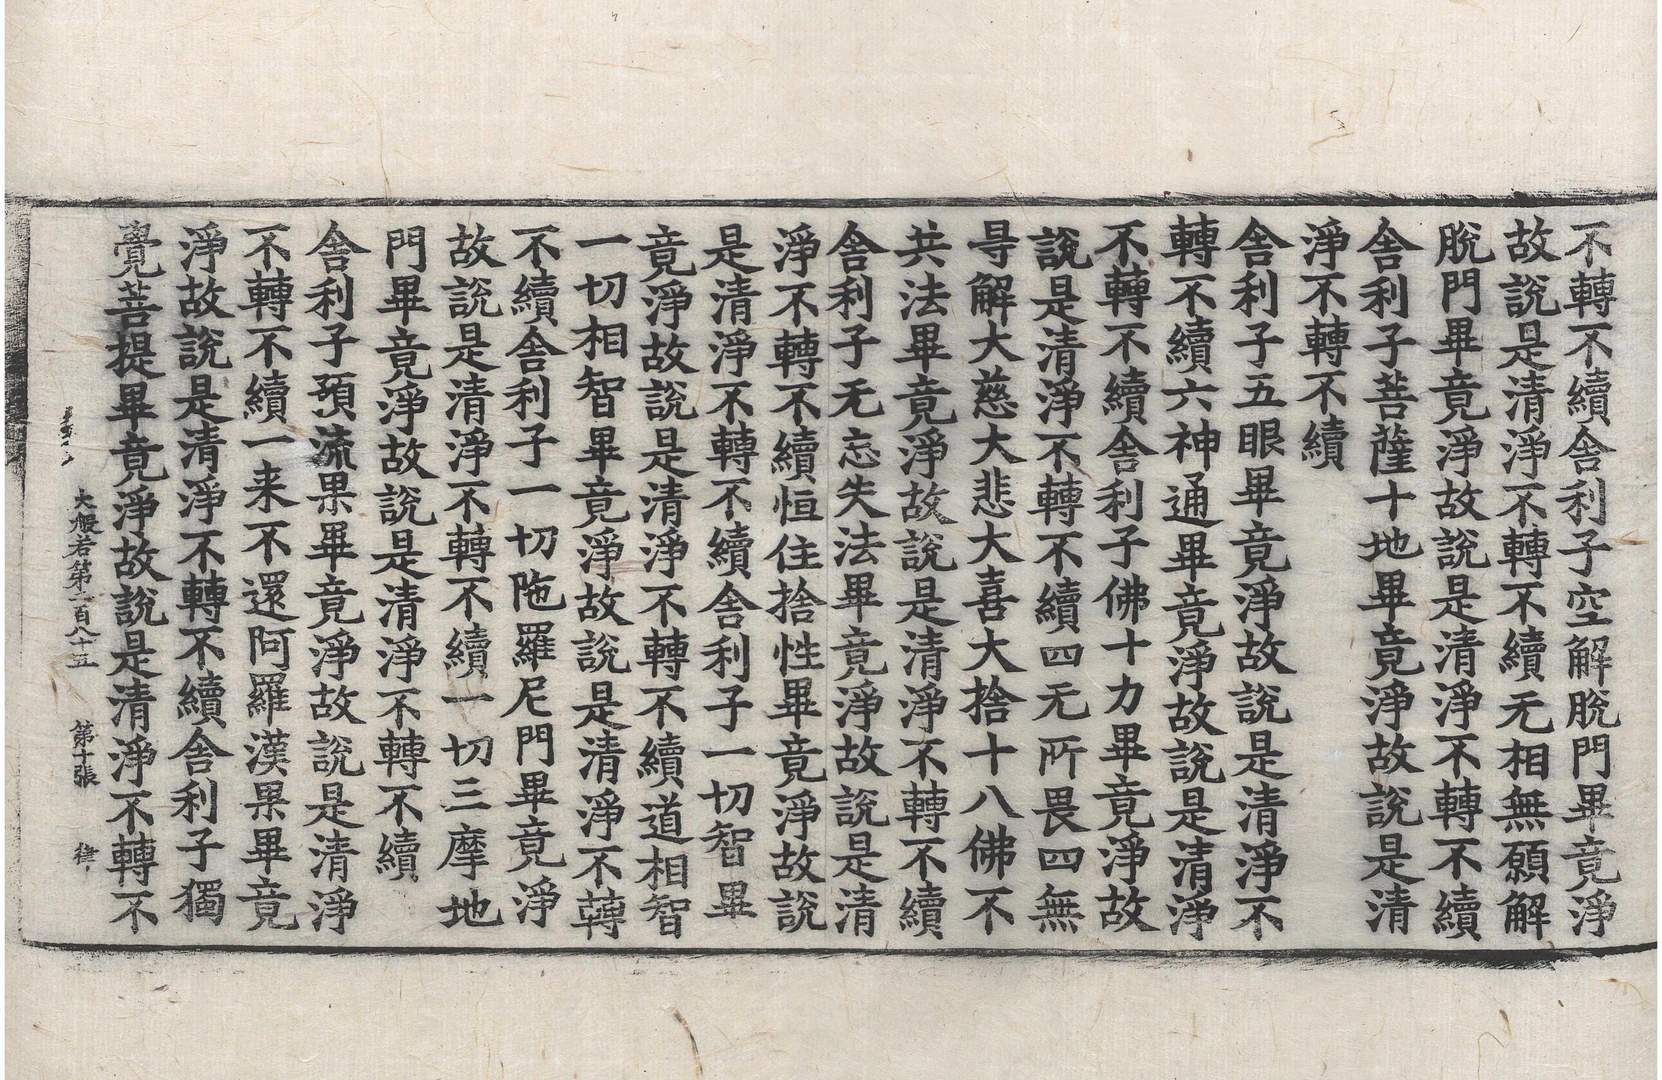 不轉不續舎利子空解脫門畢竟淨
故說是清淨不轉不續无相無願解
脫門畢竟淨故說是清淨不轉不續
舎利子菩薩十地畢竟淨故說是清
淨不轉不續
舎利子五眼畢竟淨故說是清淨不
轉不續六神通畢竟淨故說是清淨
不轉不續舎利子佛十力畢竟淨故
說是清淨不轉不續四无所畏四無
㝵解大慈大悲大喜大捨十八佛不
共法畢竟淨故說是清淨不轉不續
舎利子无忘失法畢竟淨故說是清
淨不轉不續恒住捨性畢竟淨故說
是清淨不轉不續舎利子一切智畢
竟淨故說是清淨不轉不續道相智
一切相智畢竟淨故說是清淨不轉
不續舎利子一切陁羅尼門畢竟淨
故說是清淨不轉不續一切三摩地
門畢竟淨故說是清淨不轉不續
舎利子預流果畢竟淨故說是清淨
不轉不續一来不還阿羅漢果畢竟
淨故說是清淨不轉不續舎利子獨
覺菩提畢竟淨故說是清淨不轉不
大般若第一百八十五 第十張 律